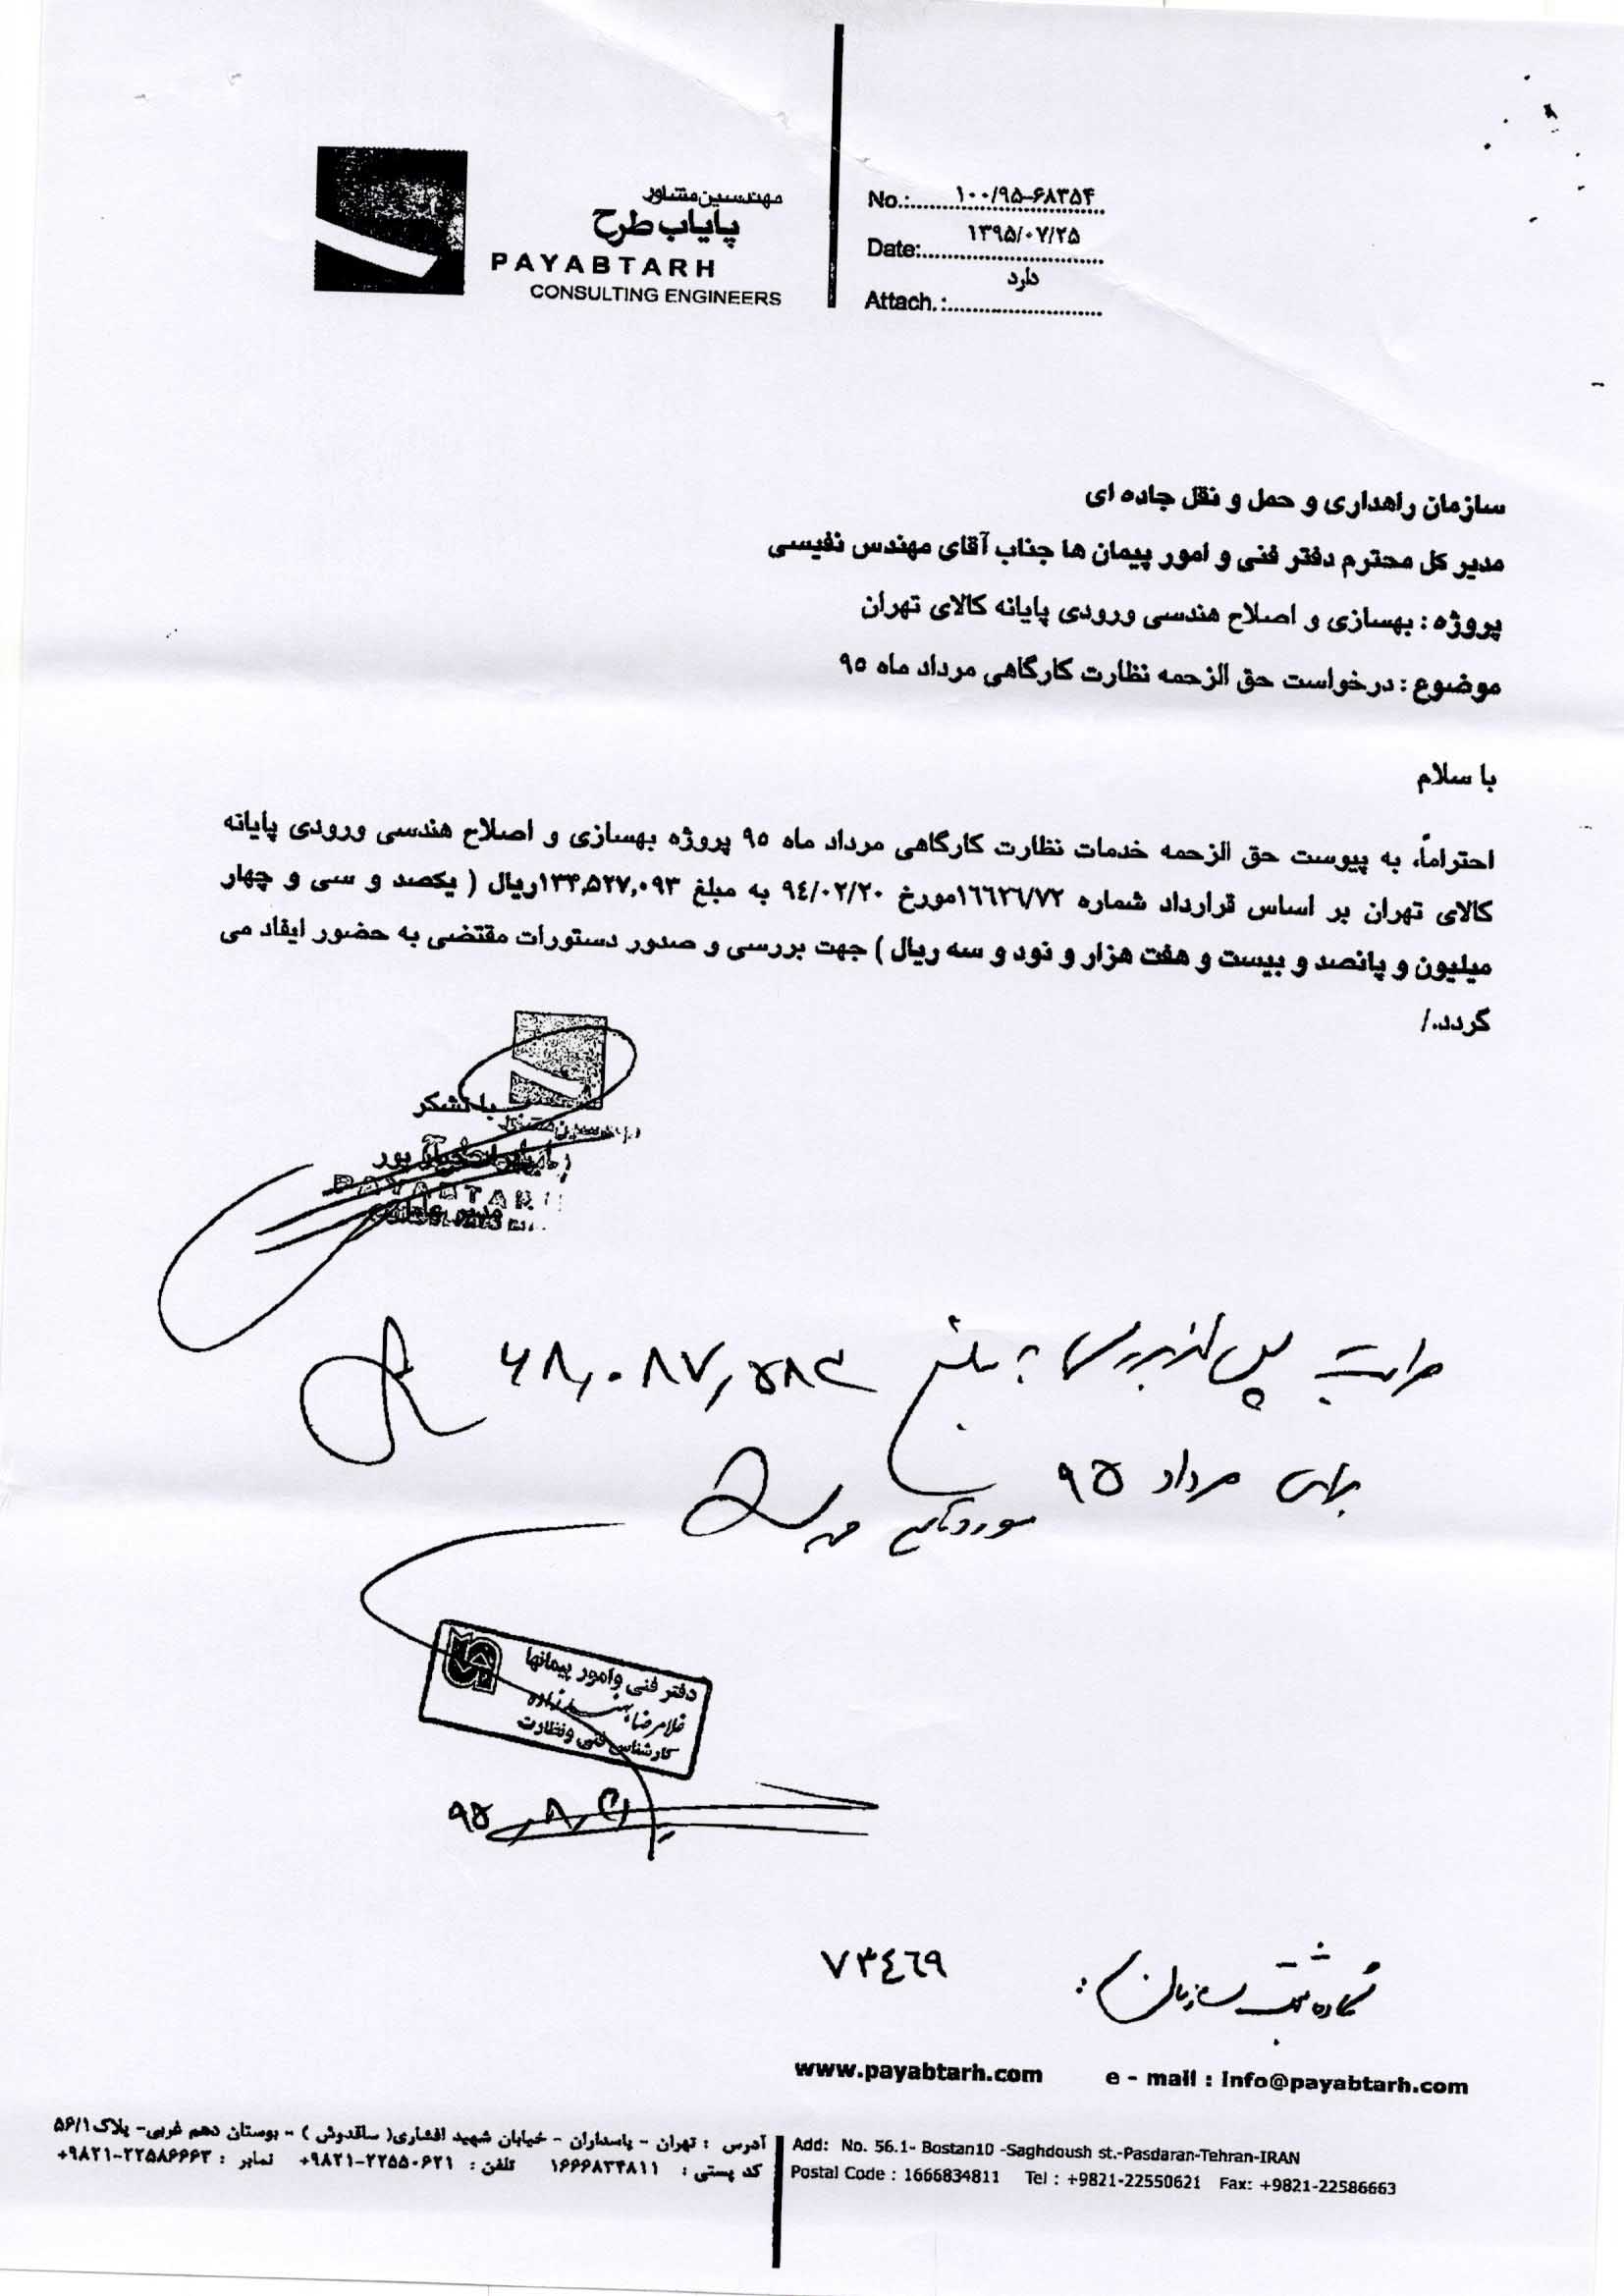 مهندسین مشاور
پایاب طرح
PAYABTARH
CONSULTING ENGINEERS
No.: ۱۰۰/۹۵-۶۸۳۵۴
Date: ۱۳۹۵/۰۷/۲۵
Attach.: دارد
سازمان راهداری و حمل و نقل جاده ای
مدیر کل محترم دفتر فنی و امور پیمان ها جناب آقای مهندس نفیسی
پروژه : بهسازی و اصلاح هندسی ورودی پایانه کالای تهران
موضوع : درخواست حق الزحمه نظارت کارگاهی مرداد ماه ۹۵
با سلام
احتراماً، به پیوست حق الزحمه خدمات نظارت کارگاهی مرداد ماه ۹۵ پروژه بهسازی و اصلاح هندسی ورودی پایانه
کالای تهران بر اساس قرارداد شماره ۱۶۶۲۶/۷۲مورخ ۹۴/۰۲/۲۰ به مبلغ ۱۳۴,۵۲۷,۰۹۳ریال ( یکصد و سی و چهار
میلیون و پانصد و بیست و هفت هزار و نود و سه ریال ) جهت بررسی و صدور دستورات مقتضی به حضور ایفاد می
گردد./
با تشکر
PAYABTAR
پس از بررسی به مبلغ ۶۸,۰۸۷,۵۸۳
برای مرداد ۹۵ مورد تأیید
دفتر فنی وامور پیمانها
غلامرضا
کارشناس فنی ونظارت
شماره ثبت سازمان : ۷۳۴۶۹
www.payabtarh.com e - mail : info@payabtarh.com
آدرس : تهران - پاسداران - خیابان شهید افشاری( ساقدوش ) - بوستان دهم غربی- پلاک ۵۶/۱
کد پستی : ۱۶۶۶۸۳۴۸۱۱ تلفن : ۲۲۵۵۰۶۲۱-۹۸۲۱+ نمابر : ۲۲۵۸۶۶۶۳-۹۸۲۱+
Add: No. 56.1- Bostan10 -Saghdoush st.-Pasdaran-Tehran-IRAN
Postal Code : 1666834811 Tel : +9821-22550621 Fax: +9821-22586663